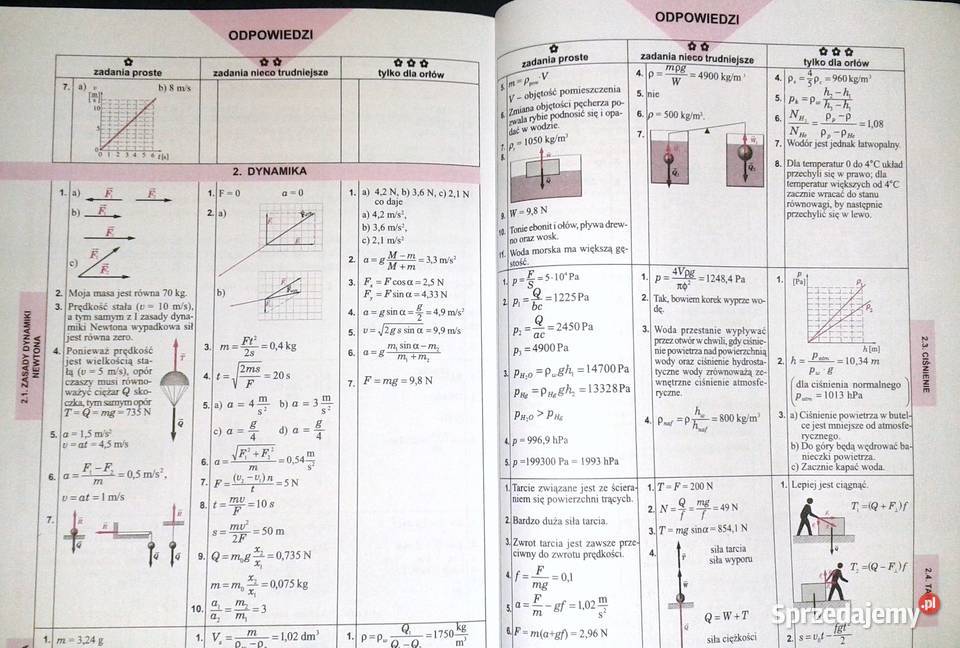 ODPOWIEDZI
zadania proste
zadania nieco trudniejsze
tylko dla orłów
7. a)
b) 8 m/s
10
5
0 1 2 3 4 5 6 t[s]
2. DYNAMIKA
2.1. ZASADY DYNAMIKI
NEWTONA
1. a)
b)
c)
2. Moja masa jest równa 70 kg.
3. Prędkość stała (υ = 10 m/s),
a tym samym z I zasady dyna-
miki Newtona wypadkowa sił
jest równa zero.
4. Ponieważ prędkość
jest wielkością sta-
łą (υ = 5 m/s), opór
czaszy musi równo-
ważyć ciężar Q sko-
czka, tym samym opór
T = Q = mg = 735 N
5. a = 1,5 m/s²
υ = at = 4,5 m/s
6. a = (F₁ – F₂)/m = 0,5 m/s²,
υ = at = 1 m/s
7.
1. m = 3,24 g
1. F = 0 a = 0
2. a)
b)
3. m = Ft²/2s = 0,4 kg
4. t = √(2ms/F) = 20 s
5. a) a = 4 m/s² b) a = 3 m/s²
c) a = g/4 d) a = g/4
6. a = √(F₁² + F₂²)/m = 0,54 m/s²
7. F = (υ₂ – υ₁)n/t = 5 N
8. t = mυ/F = 10 s
s = mυ²/2F = 50 m
9. Q = m₀g x₂/x₁ = 0,735 N
m = m₀ x₂/x₁ = 0,075 kg
10. a₁/a₂ = m₂/m₁ = 3
1. V = m = 1,02 dm³
1. a) 4,2 N, b) 3,6 N, c) 2,1 N
co daje
a) 4,2 m/s²,
b) 3,6 m/s²,
c) 2,1 m/s²
2. a = g (M – m)/(M + m) = 3,3 m/s²
3. Fₓ = F cos α = 2,5 N
Fᵧ = F sin α = 4,33 N
4. a = g sin α = g/2 = 4,9 m/s²
5. υ = √(2g s sin α) = 9,9 m/s
6. a = g (m₁ sin α – m₂)/(m₁ + m₂)
7. F = mg = 9,8 N
1. ρ = ρ Q₁ = 1750 kg/m³
ODPOWIEDZI
zadania proste
zadania nieco trudniejsze
tylko dla orłów
5. m = ρ · V
V – objętość pomieszczenia
6. Zmiana objętości pęcherza po-
zwala rybie podnosić się i opa-
dać w wodzie.
7. ρ = 1050 kg/m³
8.
9. W = 9,8 N
10. Tonie ebonit i ołów, pływa drew-
no oraz wosk.
11. Woda morska ma większą gę-
stość.
4. ρ = mρg/W = 4900 kg/m³
5. nie
6. ρ = 500 kg/m³.
7.
4. ρ = 4/5 ρ = 960 kg/m³
5. ρ = ρ (h₂ – h₁)/(h₃ – h₁)
6. N_H₂/N_He = (ρp – ρ)/(ρp – ρHe) = 1,08
7. Wodór jest jednak łatwopalny.
8. Dla temperatur 0 do 4°C układ
przechyli się w prawo; dla
temperatur większych od 4°C
zacznie wracać do stanu
równowagi, by następnie
przechylić się w lewo.
2.3. CIŚNIENIE
1. p = F/S = 5·10⁴ Pa
2. p₁ = Q/bc = 1225 Pa
p₂ = Q/ac = 2450 Pa
p₃ = 4900 Pa
3. p_H₂O = ρw gh₁ = 14700 Pa
p_Hg = ρHg gh₂ = 13328 Pa
p_H₂O > p_Hg
4. p = 996,9 hPa
5. p = 199300 Pa = 1993 hPa
1. p = 4Vρg/πϕ² = 1248,4 Pa
2. Tak, bowiem korek wyprze wo-
dę.
3. Woda przestanie wypływać
przez otwór w chwili, gdy ciśnie-
nie powietrza nad powierzchnią
wody oraz ciśnienie hydrosta-
tyczne wody zrównoważą ze-
wnętrzne ciśnienie atmosfe-
ryczne.
4. ρnaf = ρ hw/hnaf = 800 kg/m³
1.
p
[Pa]
h [m]
2. h = p atm./(ρw · g) = 10,34 m
dla ciśnienia normalnego
p atm. = 1013 hPa
3. a) Ciśnienie powietrza w butel-
ce jest mniejsze od atmosfe-
rycznego.
b) Do góry będą wędrować ba-
nieczki powietrza.
c) Zacznie kapać woda.
2.4. TA
1. Tarcie związane jest ze ściera-
niem się powierzchni trących.
2. Bardzo duża siła tarcia.
3. Zwrot tarcia jest zawsze prze-
ciwny do zwrotu prędkości.
4. f = F/mg = 0,1
5. a = F/m – gf = 1,02 m/s²
6. F = m(a+gf) = 2,96 N
1. T = F = 200 N
2. N = Q/f = mg/f = 49 N
3. T = mg sinα = 854,1 N
4.
siła tarcia
siła wyporu
Q = W + T
siła ciężkości
1. Lepiej jest ciągnąć.
T₁ = (Q + F₁) f
T₂ = (Q – F₁) f
2. s = υ₀t – fgt²/2
Sprzedajemy.pl